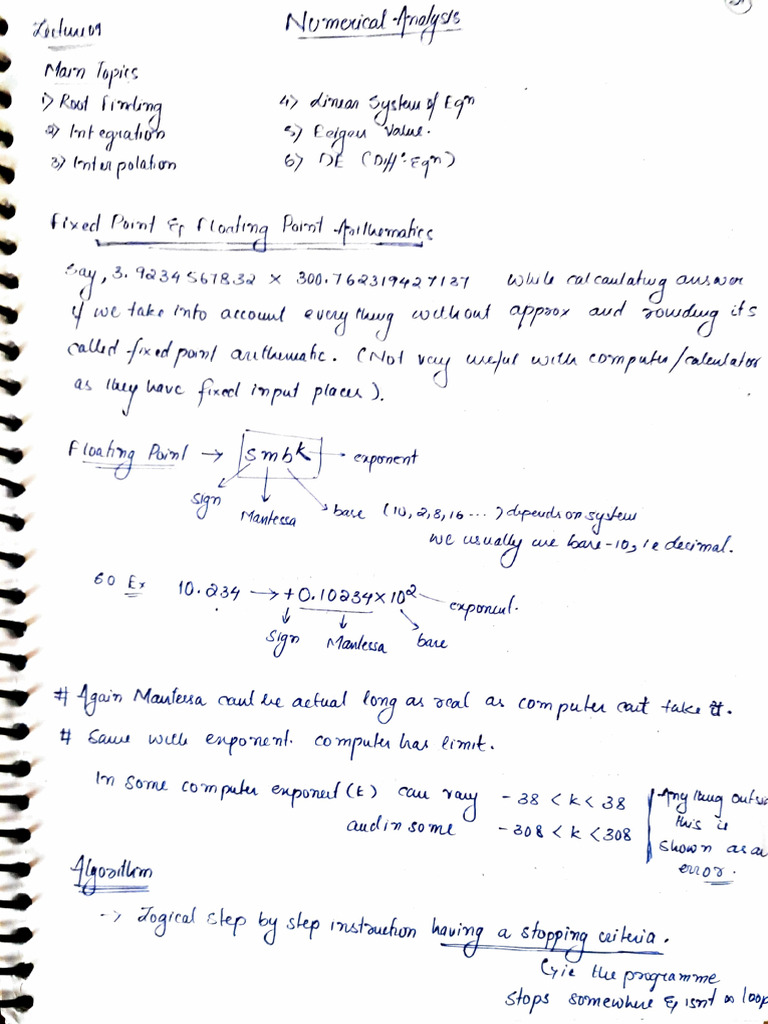 Lecture 01
Numerical Analysis
Main Topics
1) Root Finding
2) Integration
3) Interpolation
4) Linear System of Eqn
5) Eeigen Value.
6) DE (Diff. Eqn)
Fixed Point & Floating Point Arithematics
Say, 3.9234567832 × 300.762319427137 While calculating answer
if we take into account everything without approx and rounding its
called fixed point arithematic. (Not very useful with computer/calculator
as they have fixed input places).
Floating Point → smb^k → exponent
sign
Mantessa
base (10, 2, 8, 16 ...) depends on system
we usually use base-10, ie decimal.
so Ex 10.234 → +0.10234×10^2 exponent.
sign Mantessa base
# Again Mantessa can't be actual long as real as computer can't take it.
# Same with exponent. computer has limit.
In some computer exponent (k) can vary -38 < k < 38
and in some -308 < k < 308
Anything outsi
this is
shown as an
error.
Algorithm
-> Logical step by step instruction having a stopping criteria.
ie the programme
stops somewhere & isn't on loop